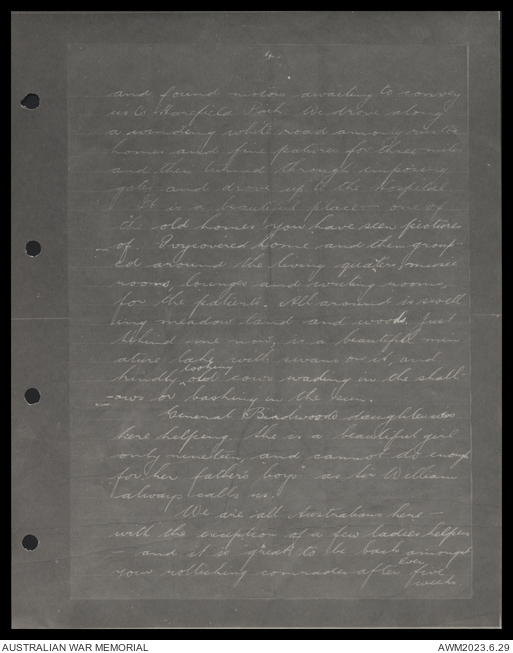 4.
and found motors awaiting to convey
us to Harefield Park. We drove along
a winding white road among rustic
homes and fine patures for three miles
and then turned through imposing
gates and drove up to the hospital
It is a beautiful place - one of
the old homes you have seen pictures
of. Ivycovered home and then group-
ed around the living quaters, music
rooms, lounges and writing rooms,
for the patients. All around is swell
ing meadow land and woods. Just
behind me now, is a beautiful min
ature lake with swans on it, and
kindly looking old cows wading in the shall-
ows or basking in the sun.
General Birdwoods daughter was
here helping. She is a beautiful girl
only nineteen and cannot do enough
for her father's "boys" as Sir William
always calls us.
We are all Australians here -
with the exception of a few ladies helpers
- and it is great to be back amongst
your rollicking comrades after Ever five
weeks
AUSTRALIAN WAR MEMORIAL
AWM2023.6.29